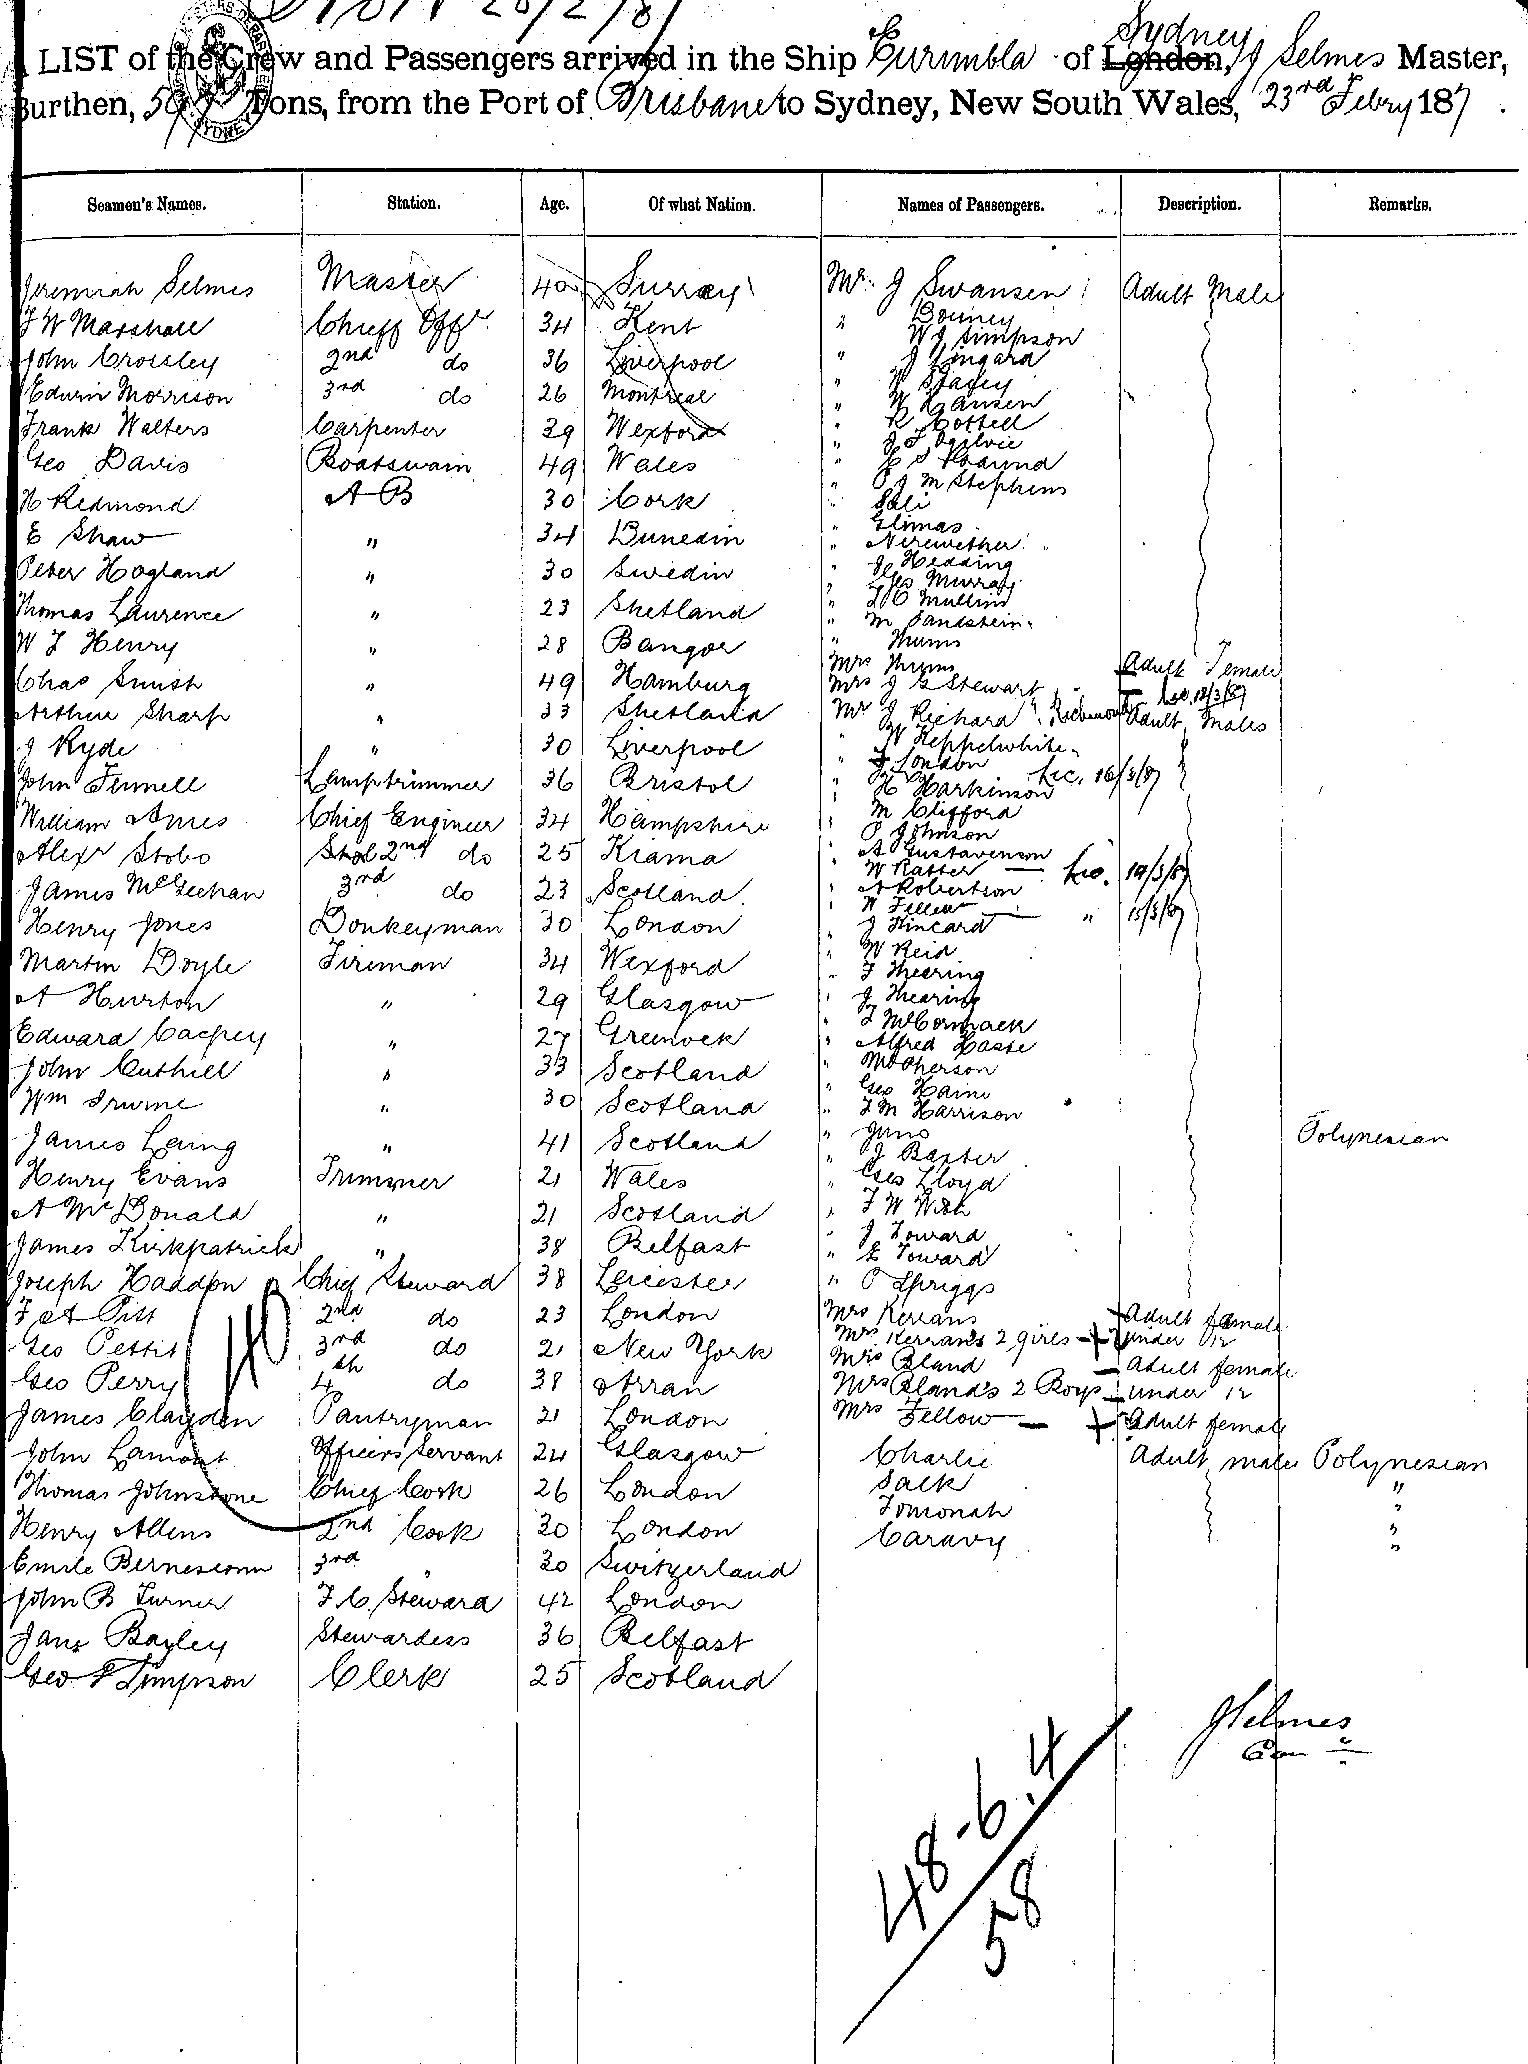 28/2/87
Sydney
LIST of the Crew and Passengers arrived in the Ship Eurimbla of London, J Selmes Master,
Burthen, Tons, from the Port of Brisbane to Sydney, New South Wales, 23rd Febry 1887.
Seamen's Names. Station. Age. Of what Nation. Names of Passengers. Description. Remarks.
Jeremiah Selmes Master 40 Surrey Mr. J Swansen Adult Male
J W Marshall Chieff Offr. 34 Kent " Bouney
" W J Simpson
John Crossley 2nd do 36 Liverpool " J Lingard
Edwin Morrison 3rd do 26 Montreal " W Stacey
" W Hansen
Frank Walters Carpenter 39 Wexford " R Cottell
" J T Ogilvie
Geo Davis Boatswain 49 Wales "
" M Stephens
H Redmond A B 30 Cork " Sali
" Elimas
E Shaw " 34 Dunedin " Nerewether
" J Hedding
Peter Hogland " 30 Swedin " Geo Murray
Thomas Laurence " 23 Shetland " L C Mullins
" M Sandstein
W J Henry " 28 Bangor " Thums
Mrs Thums Adult Female
Chas Smith " 49 Hamburg Mrs J G Stewart
Arthur Sharp " 33 Shetland Mr J Richard Adult Males
J Ryde " 30 Liverpool " W Kepplewhite
" J London
John Fennell Lamptrimmer 36 Bristol " H Harkinson Lic. 16/3/87
William Ames Chief Engineer 34 Hampshire " M Clifford
" P Johnson
Alexr Stobo 2nd do 25 Kiama " A Gustavenson
" W Ratter Lic. 14/3/87
James McGeehan 3rd do 23 Scotland " A Robertson
" W Fellew " 15/3/87
Henry Jones Donkeyman 30 London " J Kincard
" W Reid
Martin Doyle Fireman 34 Wexford " J Thearing
A Hurton " 29 Glasgow " J Thearing
" J McCormack
Edward Caepey " 27 Greenock " Alfred Haste
John Cuthill " 33 Scotland " McPherson
" Geo Haim
Wm Irvine " 30 Scotland " J M Harrison
James Laing " 41 Scotland " Juno Polynesian
" J Baxter
Henry Evans Trimmer 21 Wales " Geo Lloyd
A McDonald " 21 Scotland " J W Wish
" J Toward
James Kirkpatrick " 38 Belfast " E Toward
Joseph Haddon Chief Steward 38 Leicester " P Spriggs
F A Pitt 2nd do 23 London Mrs Kerrans Adult female
Geo Pettit 3rd do 21 New York Mrs Kerrans 2 girls under 12
Mrs Bland Adult female
Geo Perry 4th do 38 Arran Mrs Bland's 2 Boys under 12
James Clayden Pantryman 21 London Mrs Fellow Adult female
John Lamont Officers Servant 24 Glasgow Charlie Adult males Polynesian
Thomas Johnstone Chief Cook 26 London Sack "
Tomonah "
Henry Allens 2nd Cook 30 London Caravy "
Emile Bernesconn 3rd " 30 Switzerland "
John B Turner F. C. Steward 42 London
Jane Bayley Stewardess 36 Belfast
Geo Simpson Clerk 25 Scotland
40
J Selmes
Com
48 . 6 . 4
58